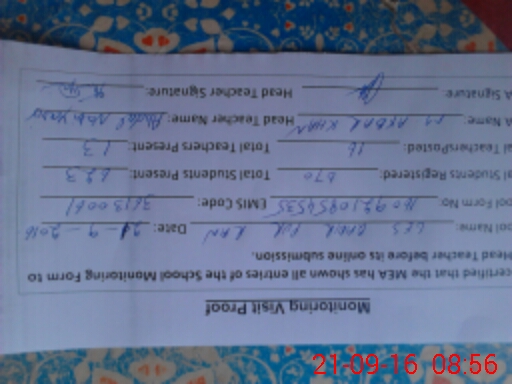 Monitoring Visit Proof
certified that the MEA has shown all entries of the School Monitoring Form to
Head Teacher before its online submission.
ool Name: GES Date: 21-9-2016
ool Form No: EMIS Code: 36130061
al Students Registered: 670 Total Students Present: 623
al TeachersPosted: 16 Total Teachers Present: 13
A Name: M AKBAR KHAN Head Teacher Name:
A Signature: Head Teacher Signature:
21-09-16 08:56